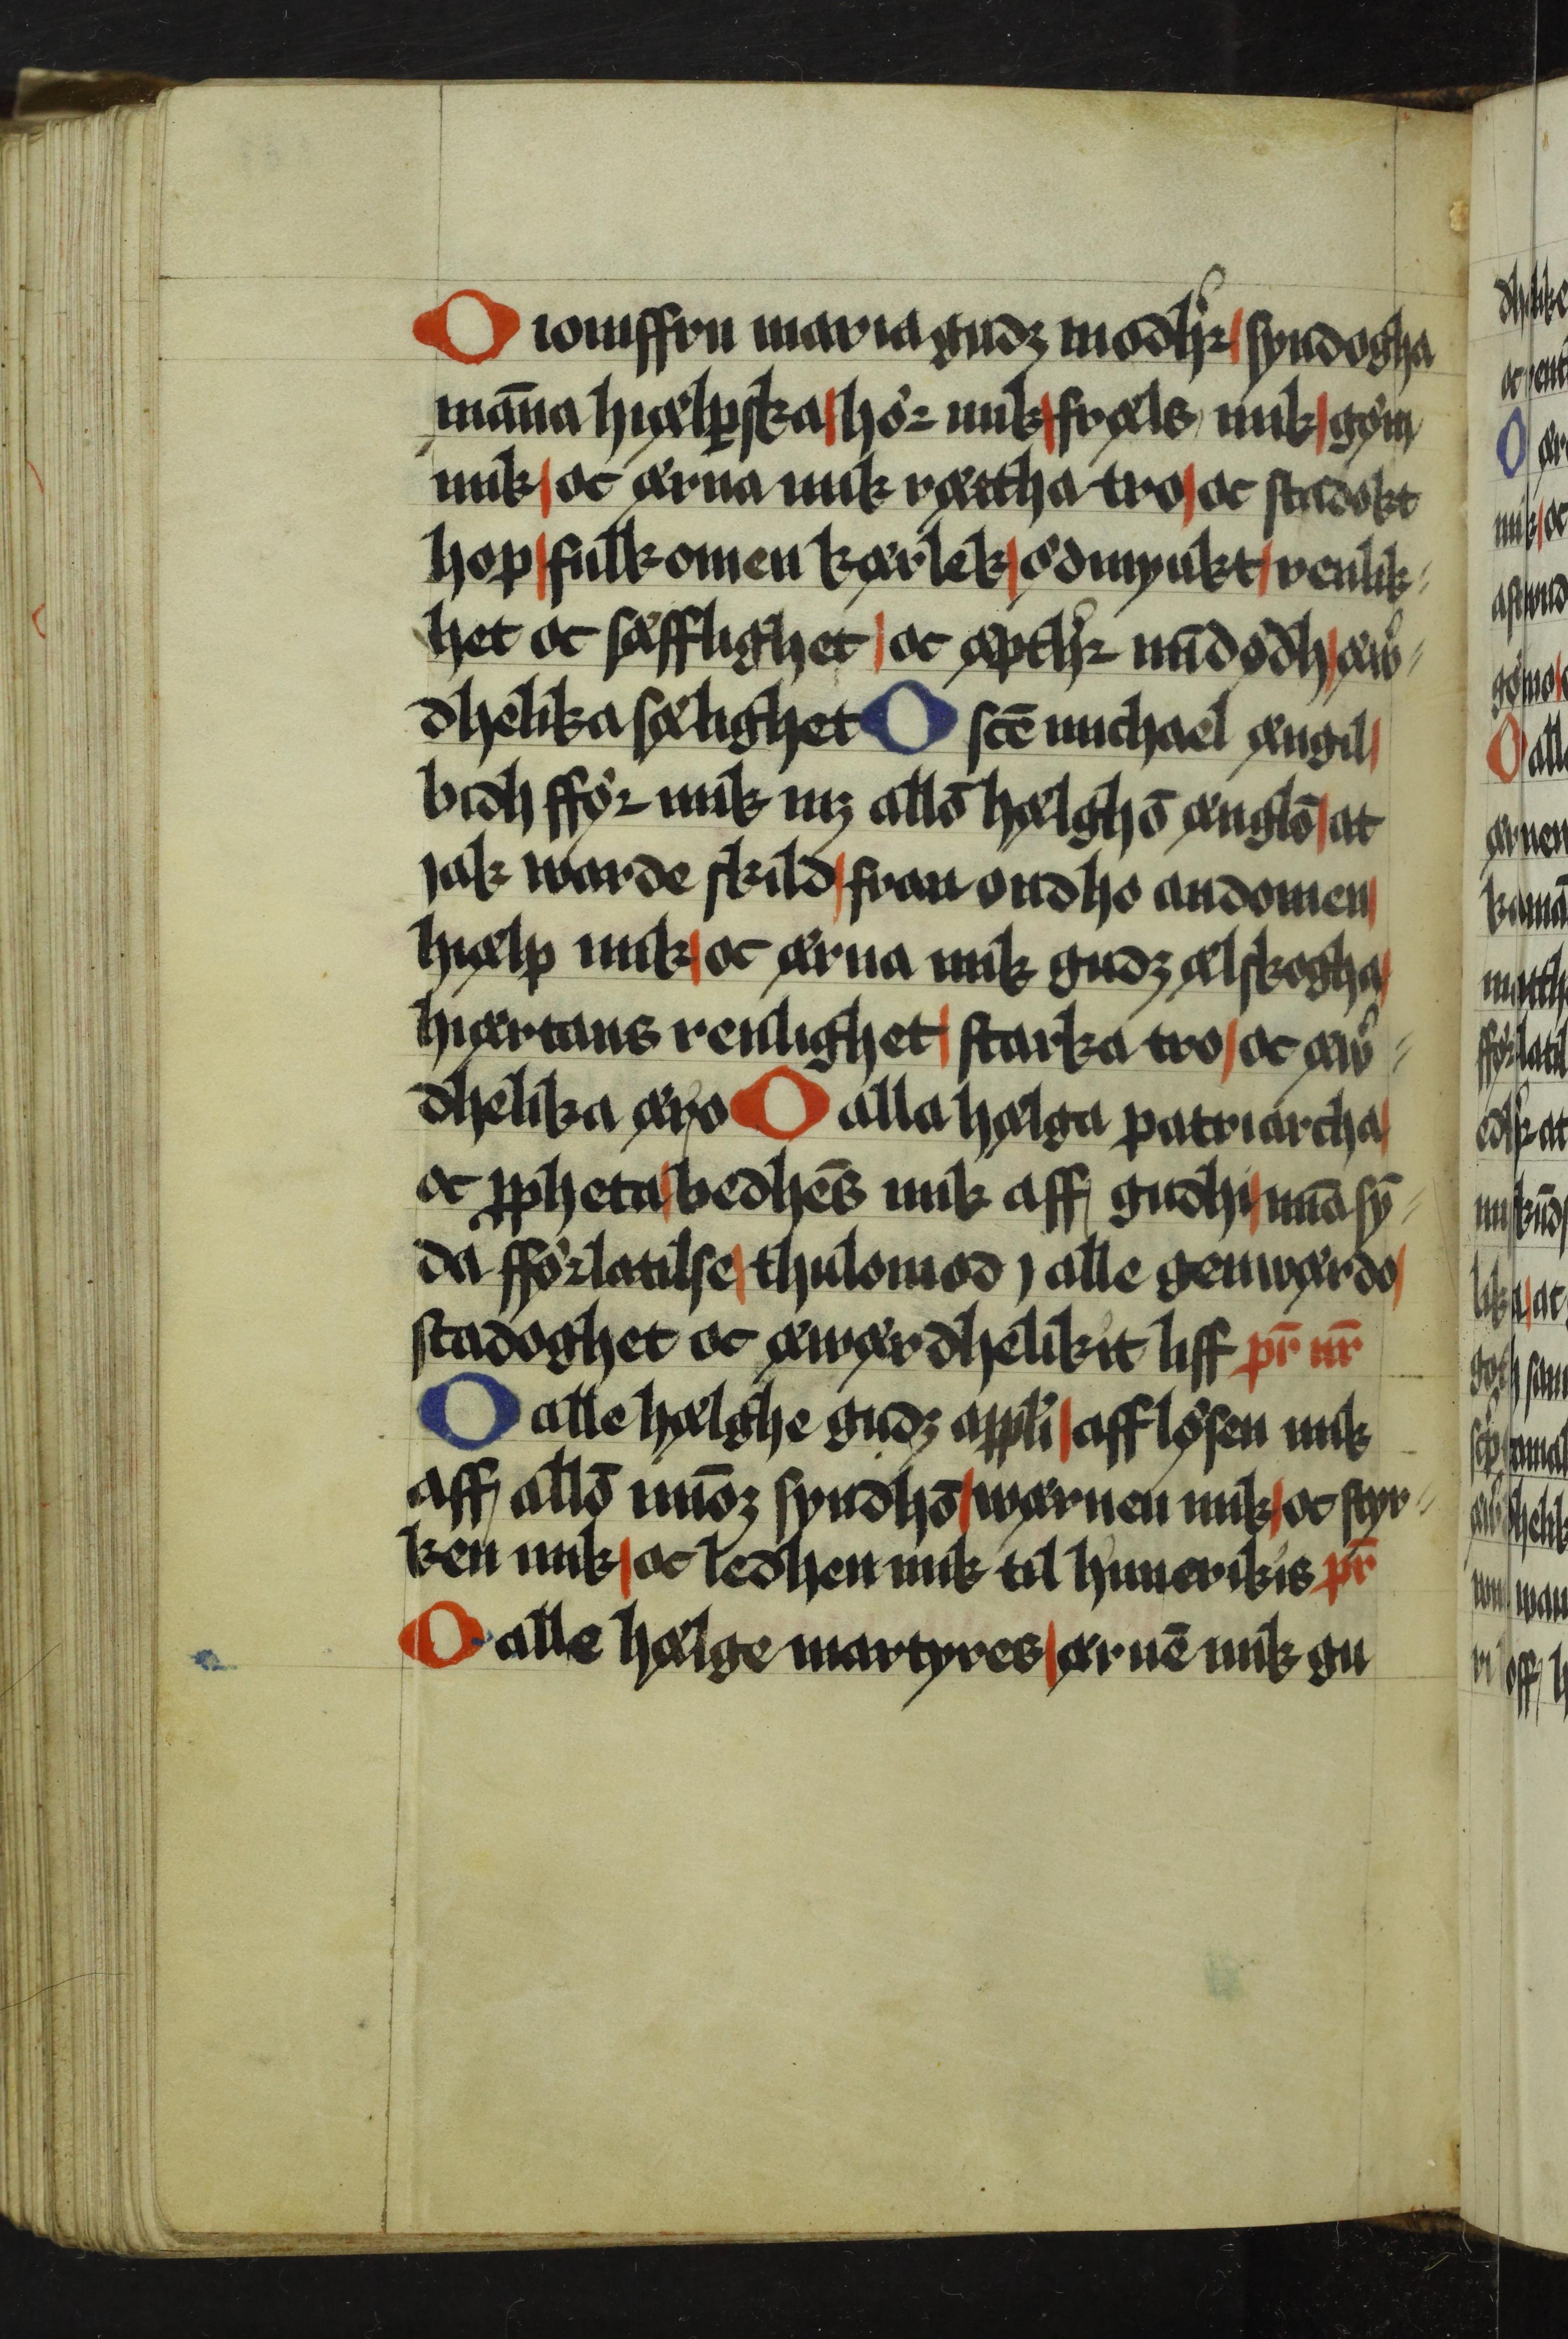 O iomffru maria gudz modhꝛ / syndogha
mā̄na hiælpſka / hꝍꝛ mik / fræls mik / gꝍm
mik / oc ærna mik rættha tro / oc stadokt
hop / fulkomen kærlek / ꝍdmyukt / renlik=
het oc sæfflighet / oc æpthꝛ mī̄ dꝍdh / æw̄=
dhelika sælighet O scē michael ængil /
bidh ffꝍꝛ mik mꝫ allō hælghō ænglō / at
jak warde skild / fran ondho andomen /
hiælp mik / oc ærna mik gudz ælskogha /
hiærtans renlighet / starka tro / oc æw̄=
dhelika æro O alla hælga patriarcha /
oc ꝓpheta / bedhēs mik aff gudhi / mī̄a sȳ=
da ffꝍꝛlatilse / thulomod j alle genwærdo /
stadoghet oc æwærdhelikit liff pr̄ nr̄
O alle hælghe gudz appl̄i / afflꝍsen mik
aff allō mī̄oꝫ syndhō / wærnen mik / oc styr=
ken mik / oc ledhen mik til himerikis pr̄
O alle hælge martyres / ærnē mik gu